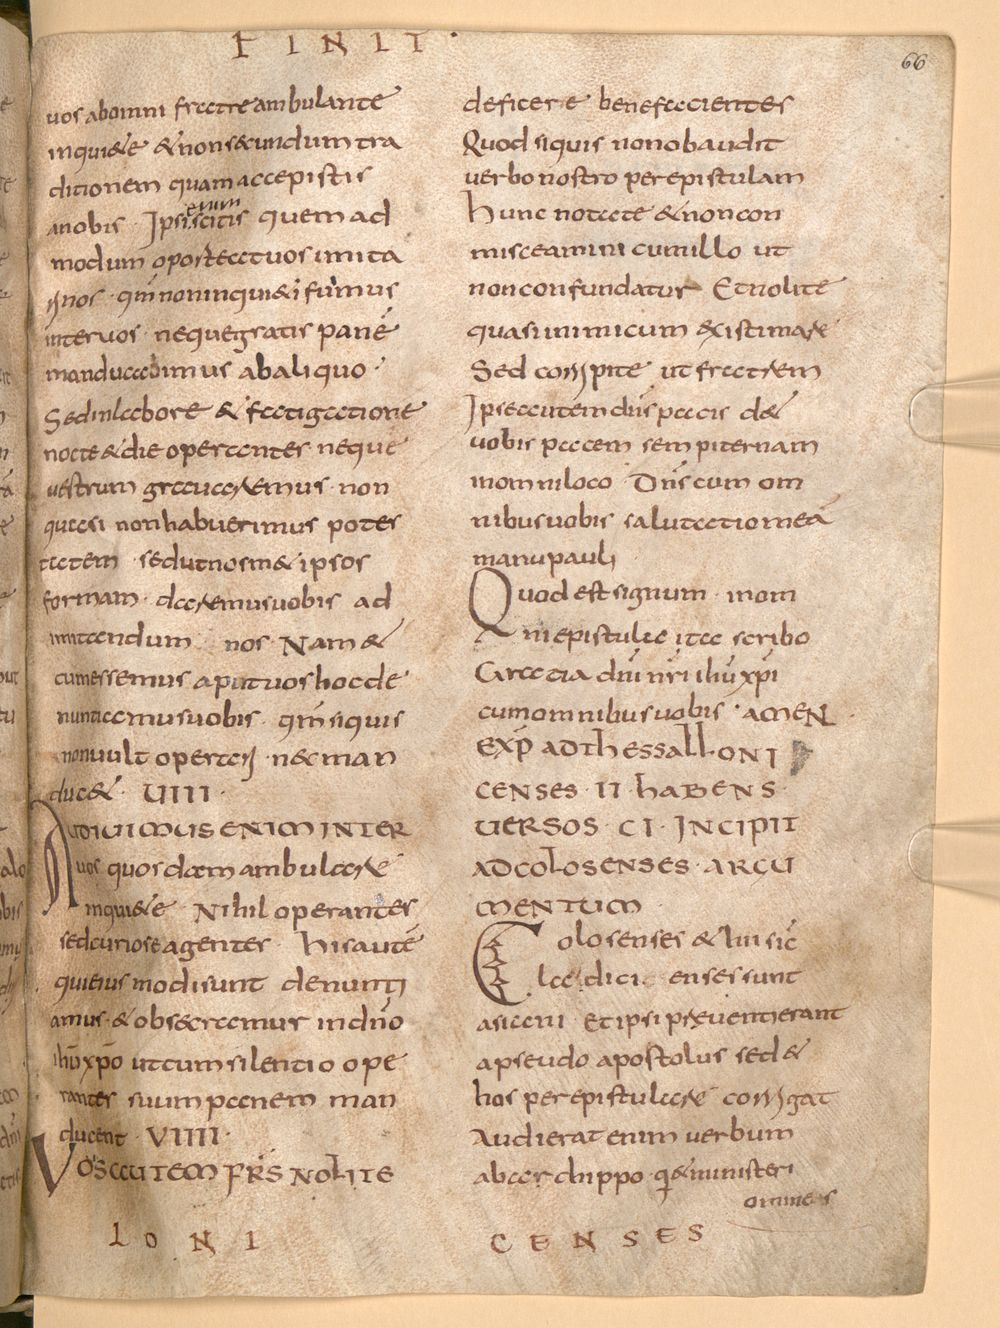 FINIT
66
uos abomni fratre ambulante
inquiete & non secundum tra
ditionem quam accepistis
anobis · Ipsi scitis quem ad
enim
modum oportet uos imita
ri nos · qm̄ non inqui&i fuimus
inter uos · neque gratis panē
manducabimus ab aliquo ·
Sed in labore & fatigatione
nocte & die operantes · neque
uestrum grauaremus · non
quasi non habuerimus potes
tatem · sed ut nosm& ipsos
formam · daremus uobis ad
imitandum nos · Nam &
cum essemus aput uos hoc de
nuntiamus uobis · qm̄ siquis
non uult operari · nec man
duc& · UIIII ·
AUDIUIMUS ENIM INTER
uos quosdam ambulare
inquiete · Nihil operantes
sed curiose agentes · his autē
qui eius modi sunt denunti
amus · & obsecramus in dn̄o
ihū xp̄o ut cum silentio ope
rantes suum panem man
ducent · VIIII ·
VOS AUTEM FR̄S NOLITE
deficere benefacientes
Quod siquis non obaudit
uerbo nostro per epistulam
hunc notate & non con
misceamini cum illo ut
non confundatur Et nolite
quasi inimicum existimare
Sed corripite ut fratrem
Ipse autem dn̄s pacis d&
uobis pacem sempiternam
in omni loco · Dn̄s cum om
nibus uobis salutatio meā
manu pauli
Quod est signum · in om
ni epistula ita scribo
Gratia dn̄i nr̄i ihū xp̄i
cum omnibus uobis · AMEN ·
EXP̄ AD THESSALLONI
CENSES · II HABENS ·
UERSOS · CI · INCIPIT
AD COLOSENSES · ARGU
MENTUM
Colosenses & hii sic̄
lau dici censes sunt
asiani · Et ipsi preuenti erant
apseudo apostolus sed &
hos per epistulare corrigat
Audierat enim uerbum
ab archippo · qi & ministeri
omnes
LONI CENSES